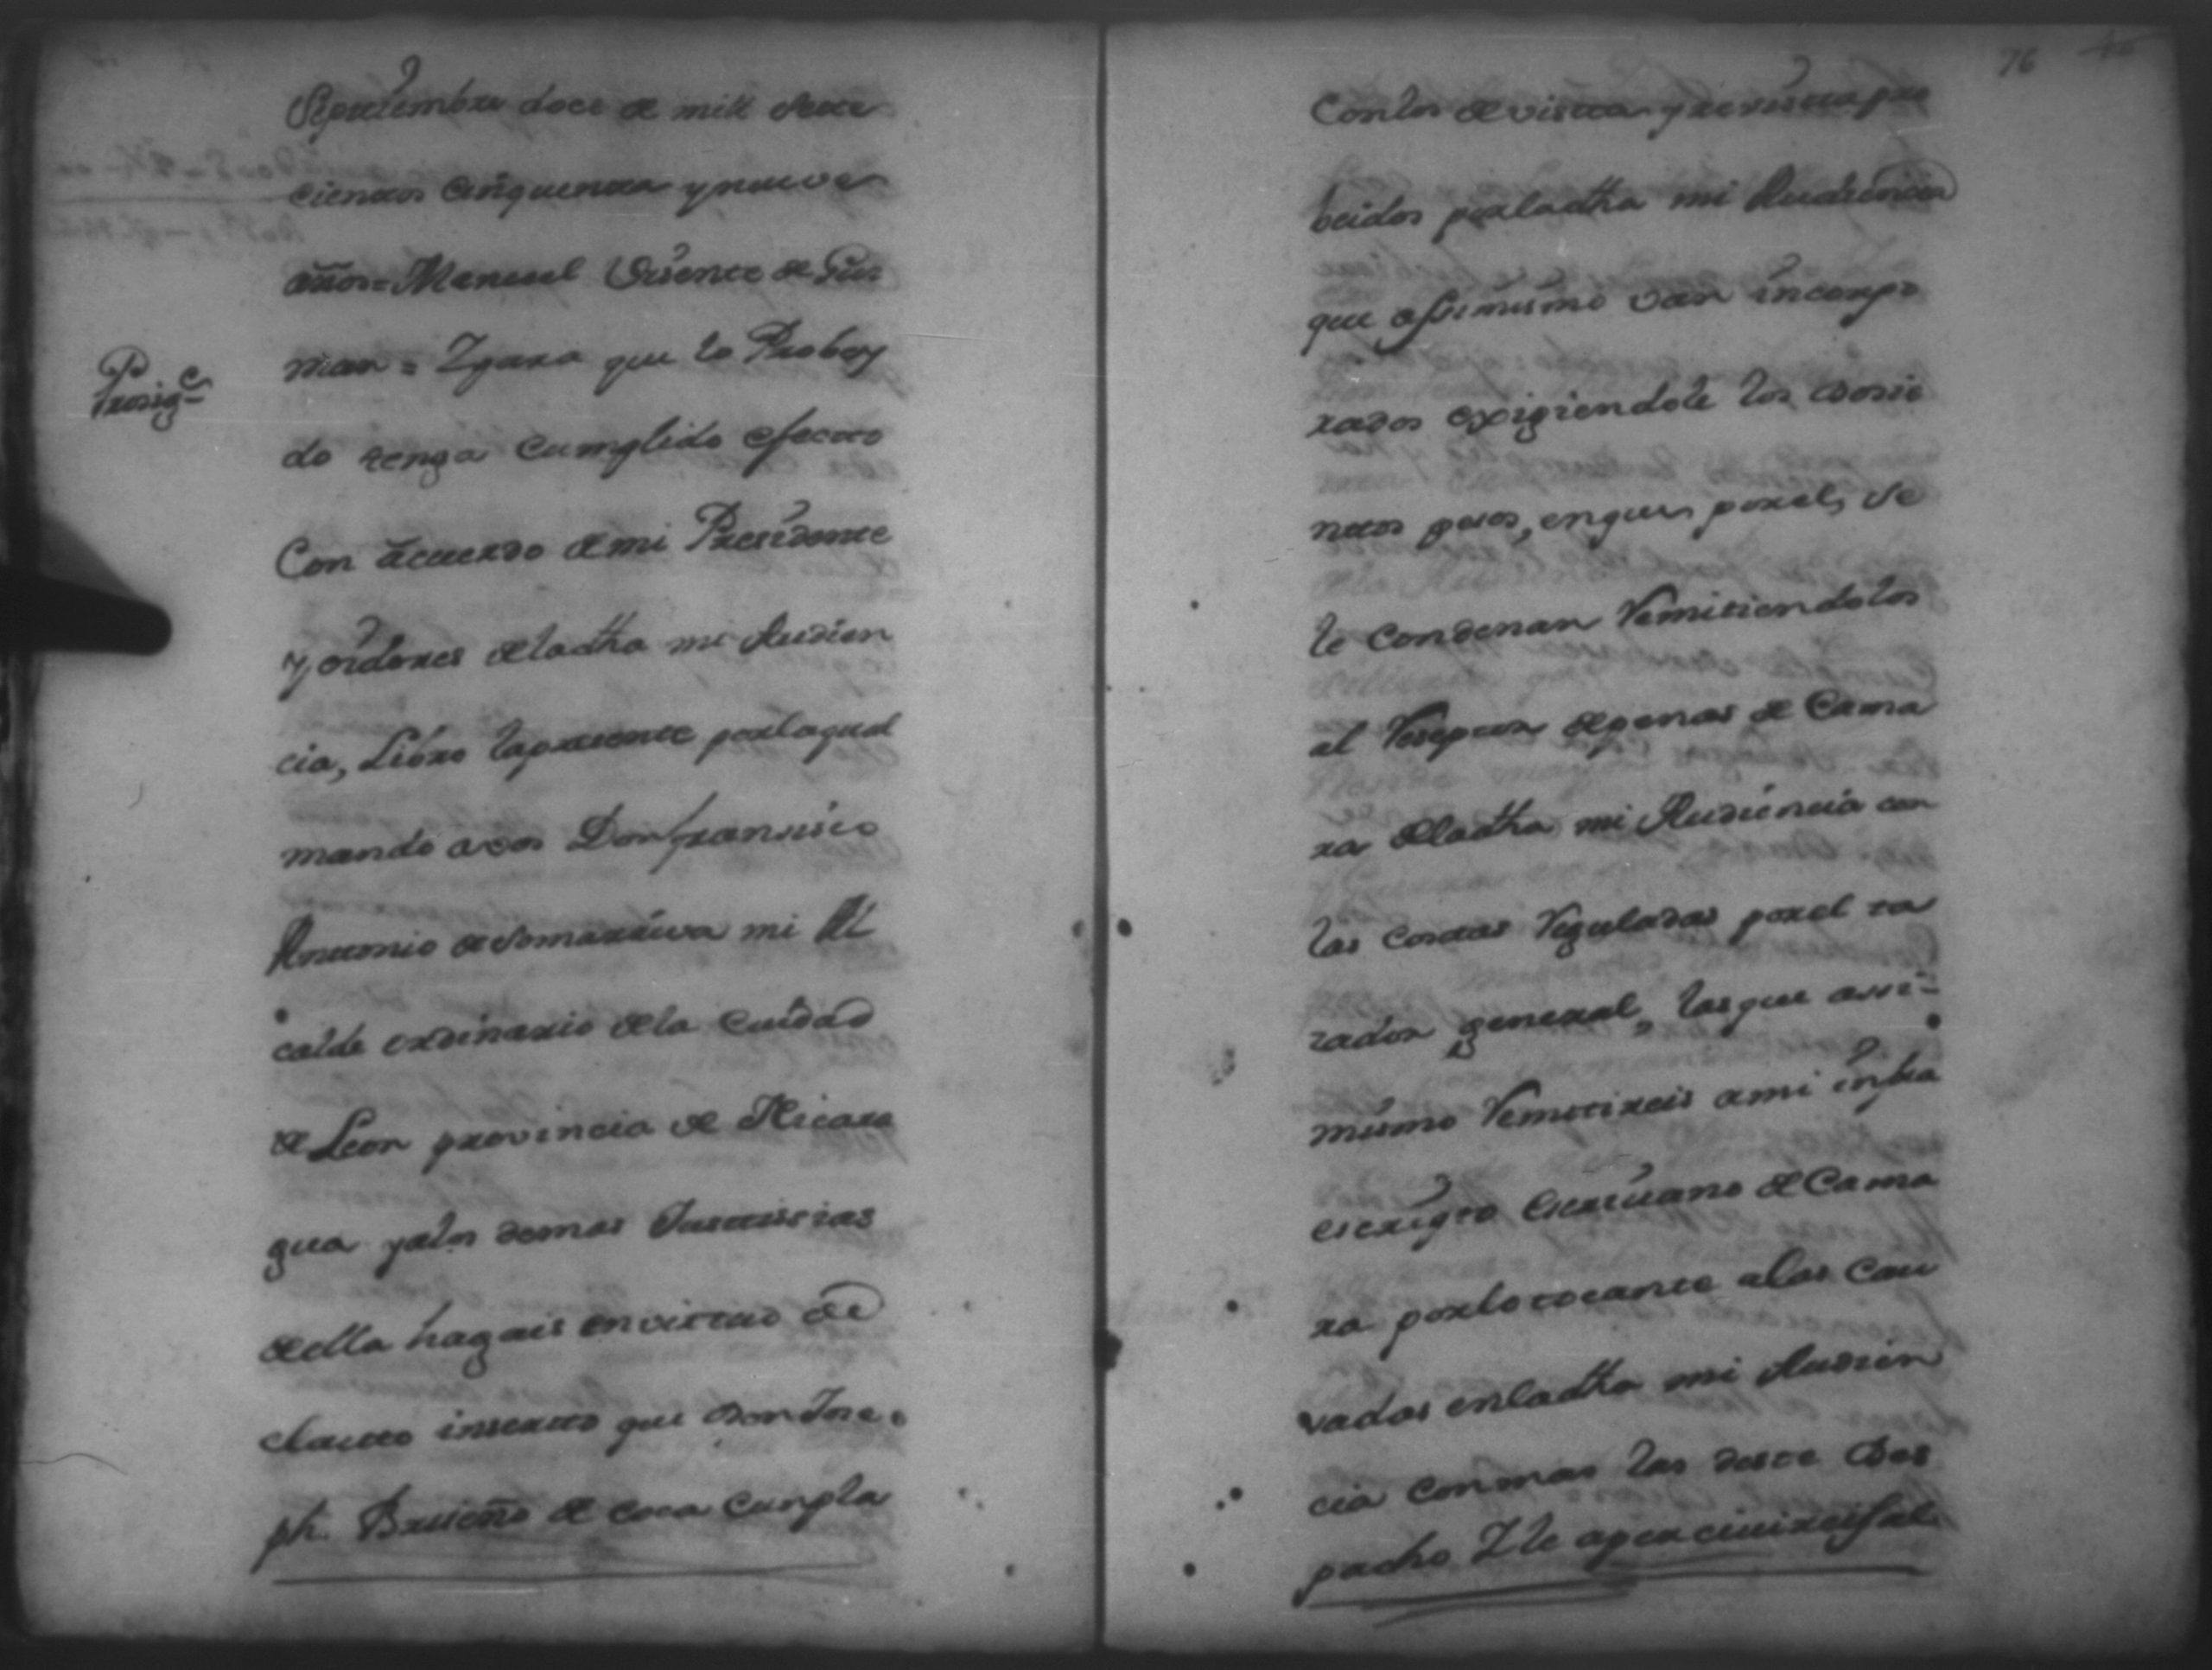 Septiembre doce de mill sete
cientos cinquenta y nueve
años = Manuel Vicente de Guz
man = Y para que lo Probey
Prosig.e
do tenga cumplido efecto
Con acuerdo de mi Presidente
y oidores de la dha mi Audien
cia, Libro la presente por la qual
mando a vos Don francisco
Antonio de Somarriva mi Al
calde ordinario de la Ciudad
de Leon provincia de Nicara
gua y a los demas Justicias
de ella hagais en virtud de
el auto inserto que Don Jose
ph. Briseño de Coca cumpla
76
Con los de vista y revista pro
beidos por la dha mi Audiencia
que assimismo van incorpo
rados exigiendole los dosie
ntos pesos, en que, por el, se
le condenan Remitiendolos
al Reseptor de penas de Cama
ra de la dha mi Audiencia con
las costas Reguladas por el ta
zador general, las que assi-
mismo Remitireis a mi infra
escripto Escrivano de Cama
ra por lo tocante a las cau
zadas en la dha mi Audien
cia con mas las deste Des
pacho Y le apercivireis al